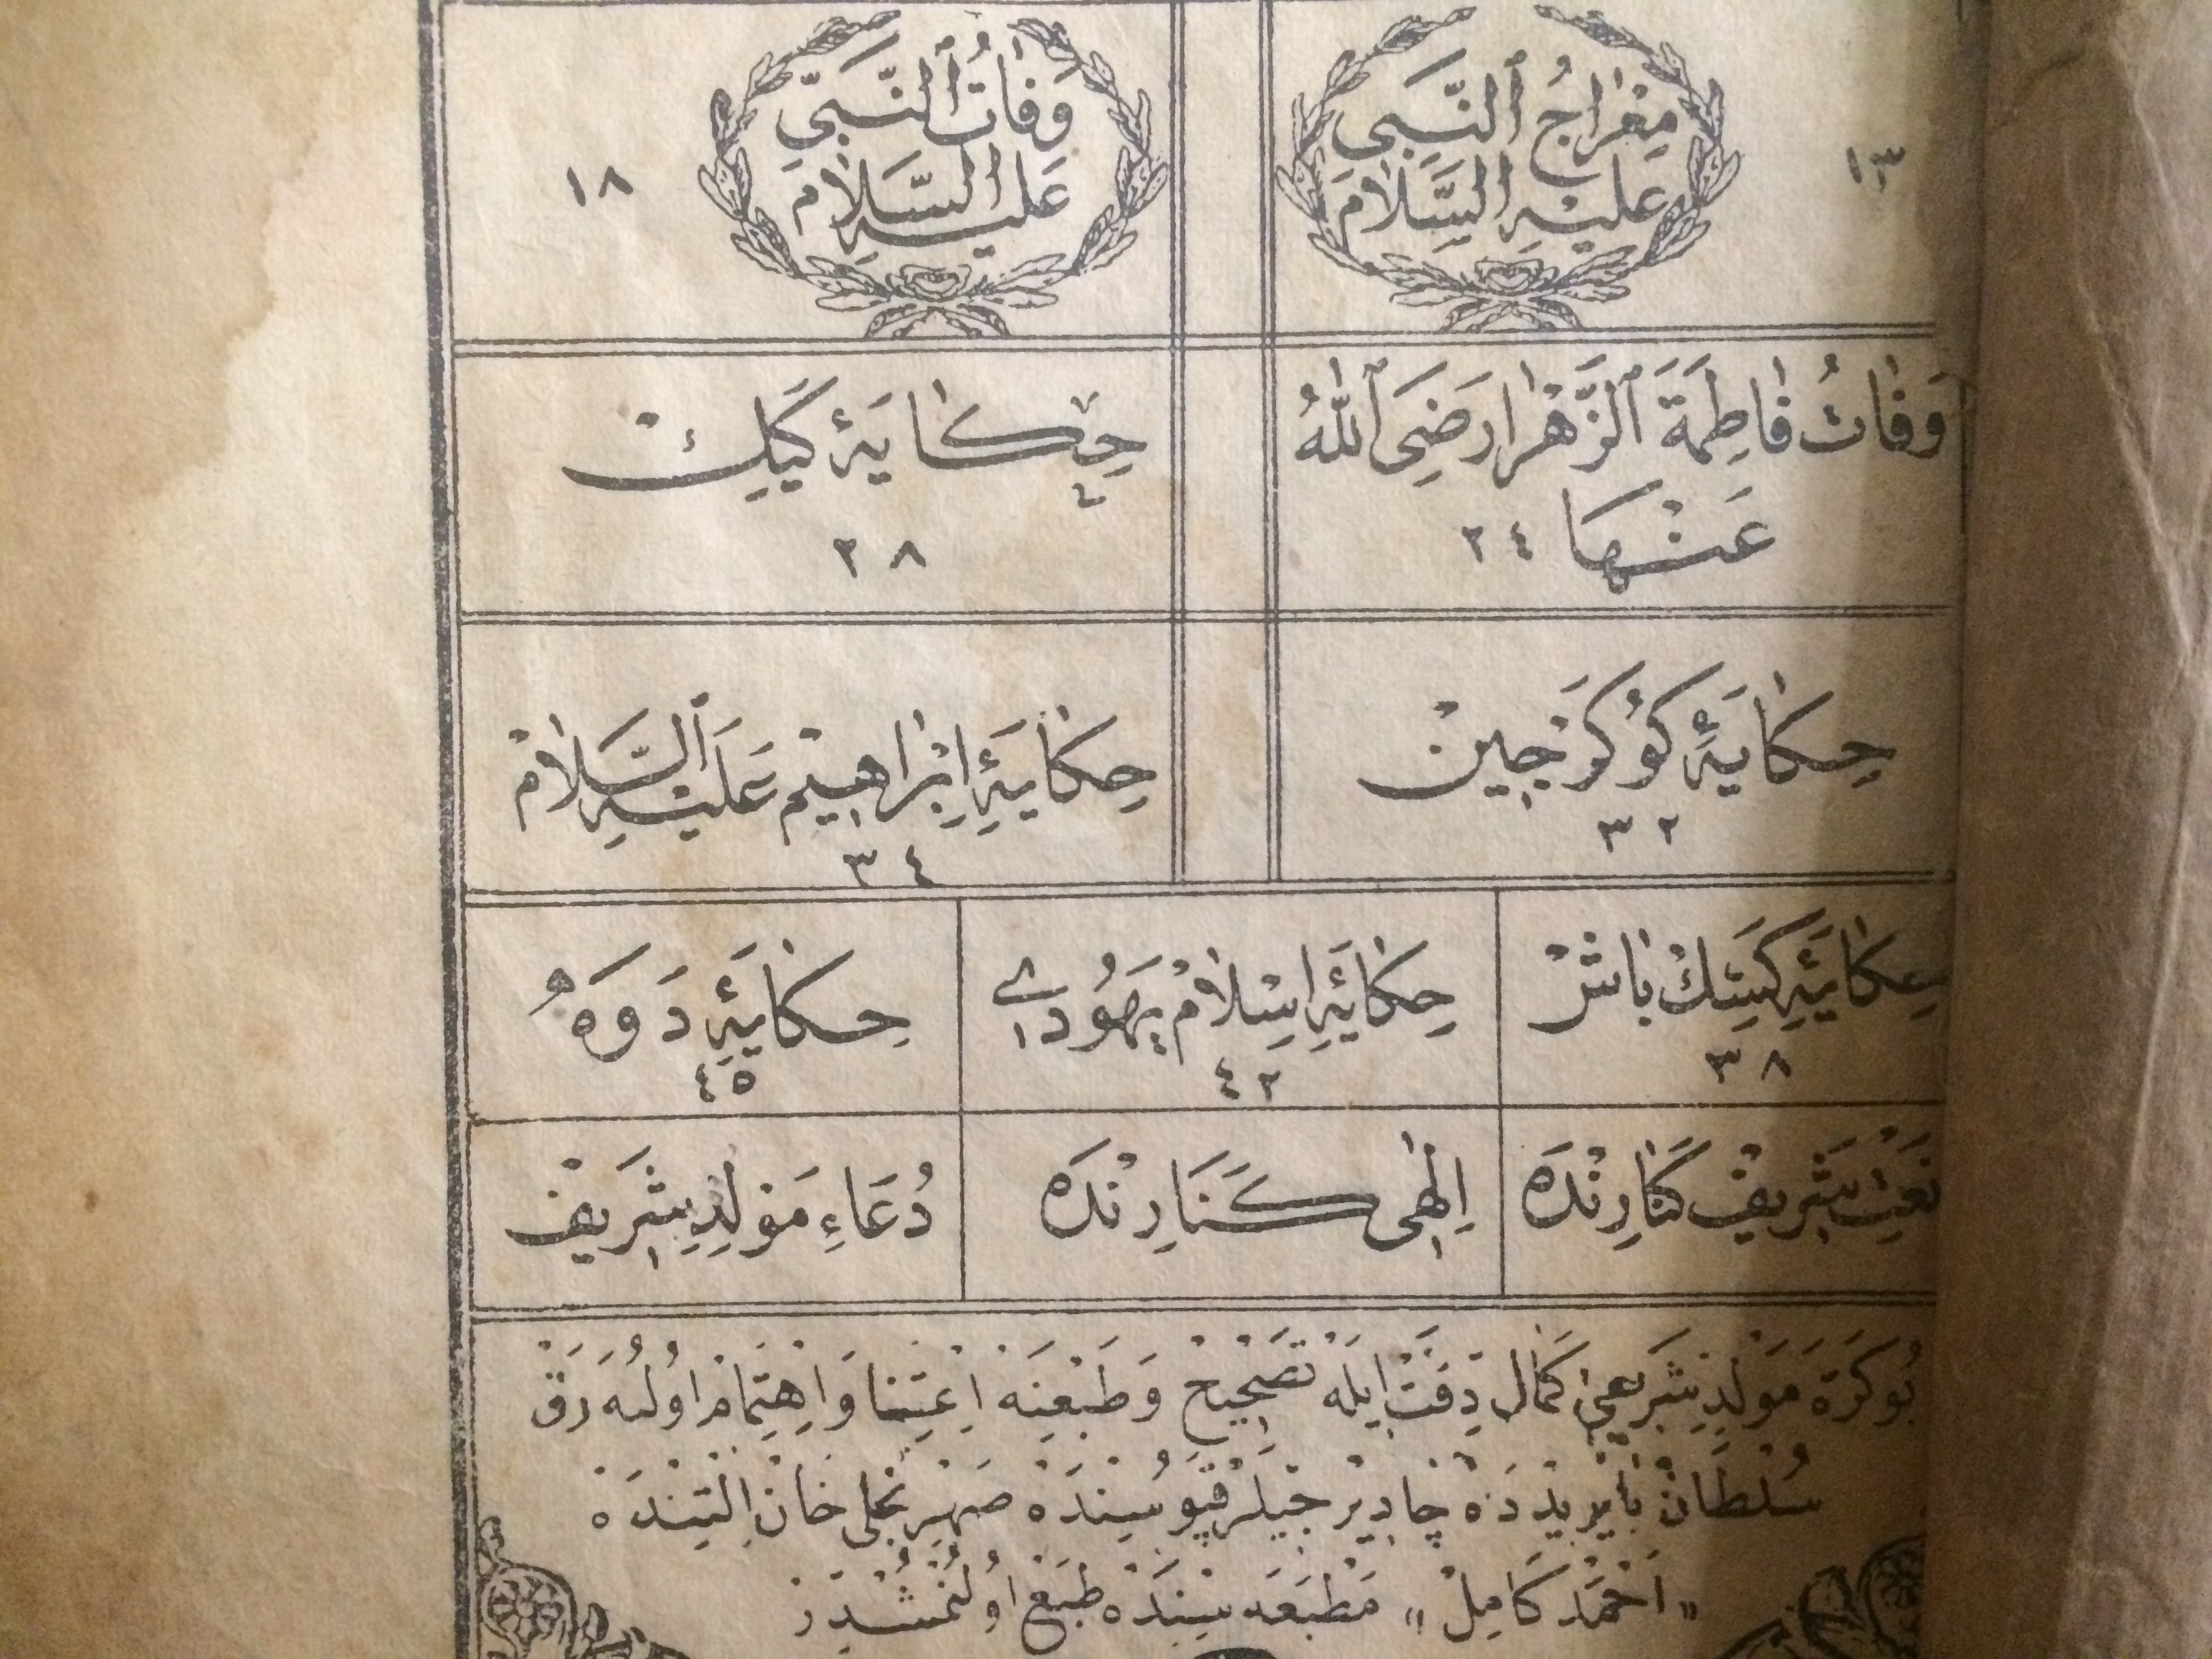 مِعْرَاجُ ٱلنَّبِي
عَلَيْهِ السَّلَامْ
١٣
وَفَاتُ ٱلنَّبِيّ
عَلَيْهِ السَّلَامْ
١٨
وَفَاتُ فَاطِمَةَ ٱلزَّهْرَا رَضِىَ ٱللّٰهُ
عَنْهَا ٢٤
حِكَايَهٔ كَيِكْ
٢٨
حِكَايَهٔ كُوكَرْجِينْ
٣٢
حِكَايَهٔ اِبْرَاهِيمْ عَلَيْهِ ٱلسَّلَامْ
٣٤
حِكَايَهٔ كَسِكْ بَاشْ
٣٨
حِكَايَهٔ اِسْلَامْ يَهُودِى
٤٢
حِكَايَهٔ دَوَهْ
٤٥
نَعْتِ شَرِيفْ كَنَارِنْدَهْ
اِلٰهِى كَنَارِنْدَهْ
دُعَاءِ مَوْلِدِ شَرِيفْ
بُوكَرَّه مَوْلِدِ شَرِيفِى كَمَالِ دِقَّتْ اِيلَهْ تَصْحِيحْ وَطَبْعِنَهْ اِعْتِنَا وَاِهْتِمَامْ اُولُنَهرَقْ
سُلْطَانْ بَايَزِيدْدَهْ چَادِيرْجِيلَرْ قَپُوسِنْدَهْ صَهْرِنْجلى خَانْ اَلْتِنْدَهْ
« اَحْمَدْ كَامِلْ » مَطْبَعَهسِنْدَهْ طَبْعْ اُولُنْمُشْدِرْ